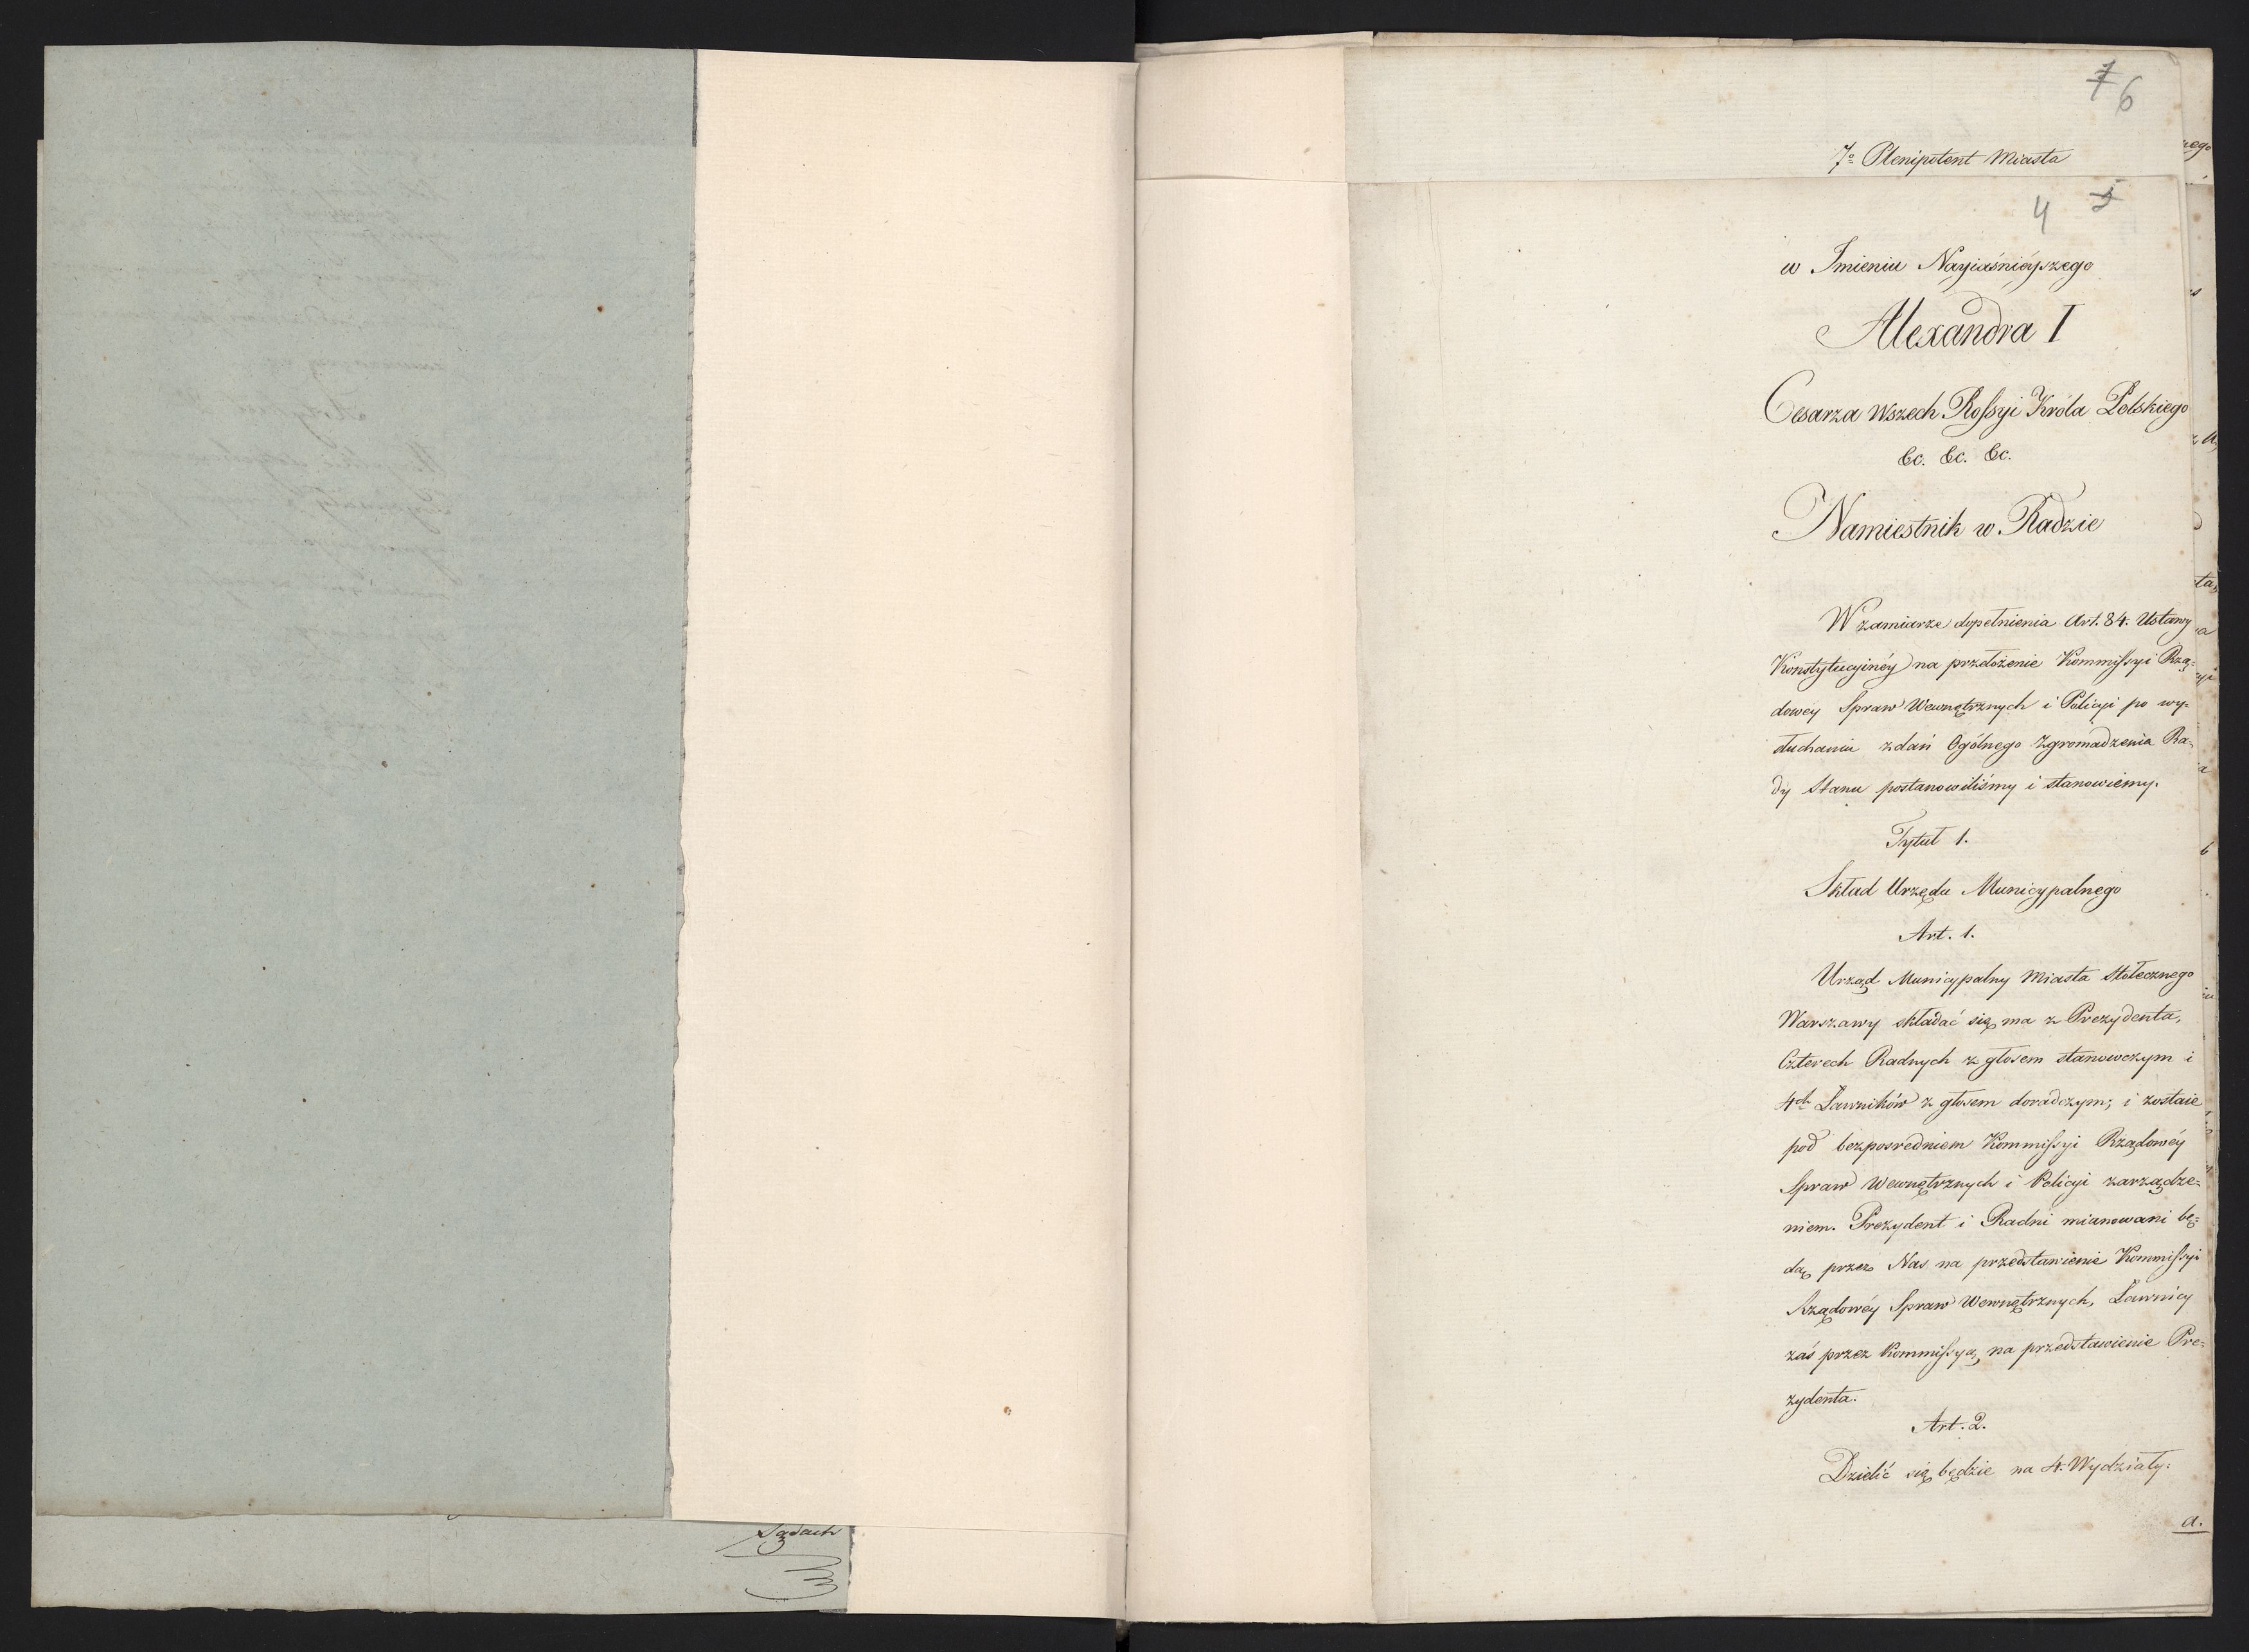 7 6
7º Plenipotent Miasta
4 5
w Imieniu Nayiaśnieyszego
Alexandra I
Cesarza Wszech Rossyi Króla Polskiego
&c. &c. &c.
Namiestnik w Radzie
W zamiarze dopełnienia Art. 84. Ustawy
Konstytucyinéy na przełożenie Kommissyi Rzą-
dowey Spraw Wewnętrznych i Policyi po wy-
słuchaniu zdań Ogólnego Zgromadzenia Ra-
dy Stanu postanowiliśmy i stanowiemy.
Tytuł 1.
Skład Urzędu Municypalnego
Art. 1.
Urząd Municypalny Miasta Stołecznego
Warszawy składać się ma z Prezydenta,
Czterech Radnych z głosem stanowczym i
4ch Ławników z głosem doradczym; i zostaie
pod bezposredniem Kommissyi Rządowéy
Spraw Wewnętrznych i Policyi zarządze-
niem. Prezydent i Radni mianowani bę-
dą przez Nas na przedstawienie Kommissyi
Rządowéy Spraw Wewnętrznych, Ławnicy
zaś przez Kommissyą na przedstawienie Pre-
zydenta.
Art. 2.
Dzielić się będzie na 4. Wydziały:
a.